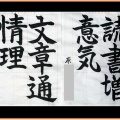 読書増
意気
文章通
情理